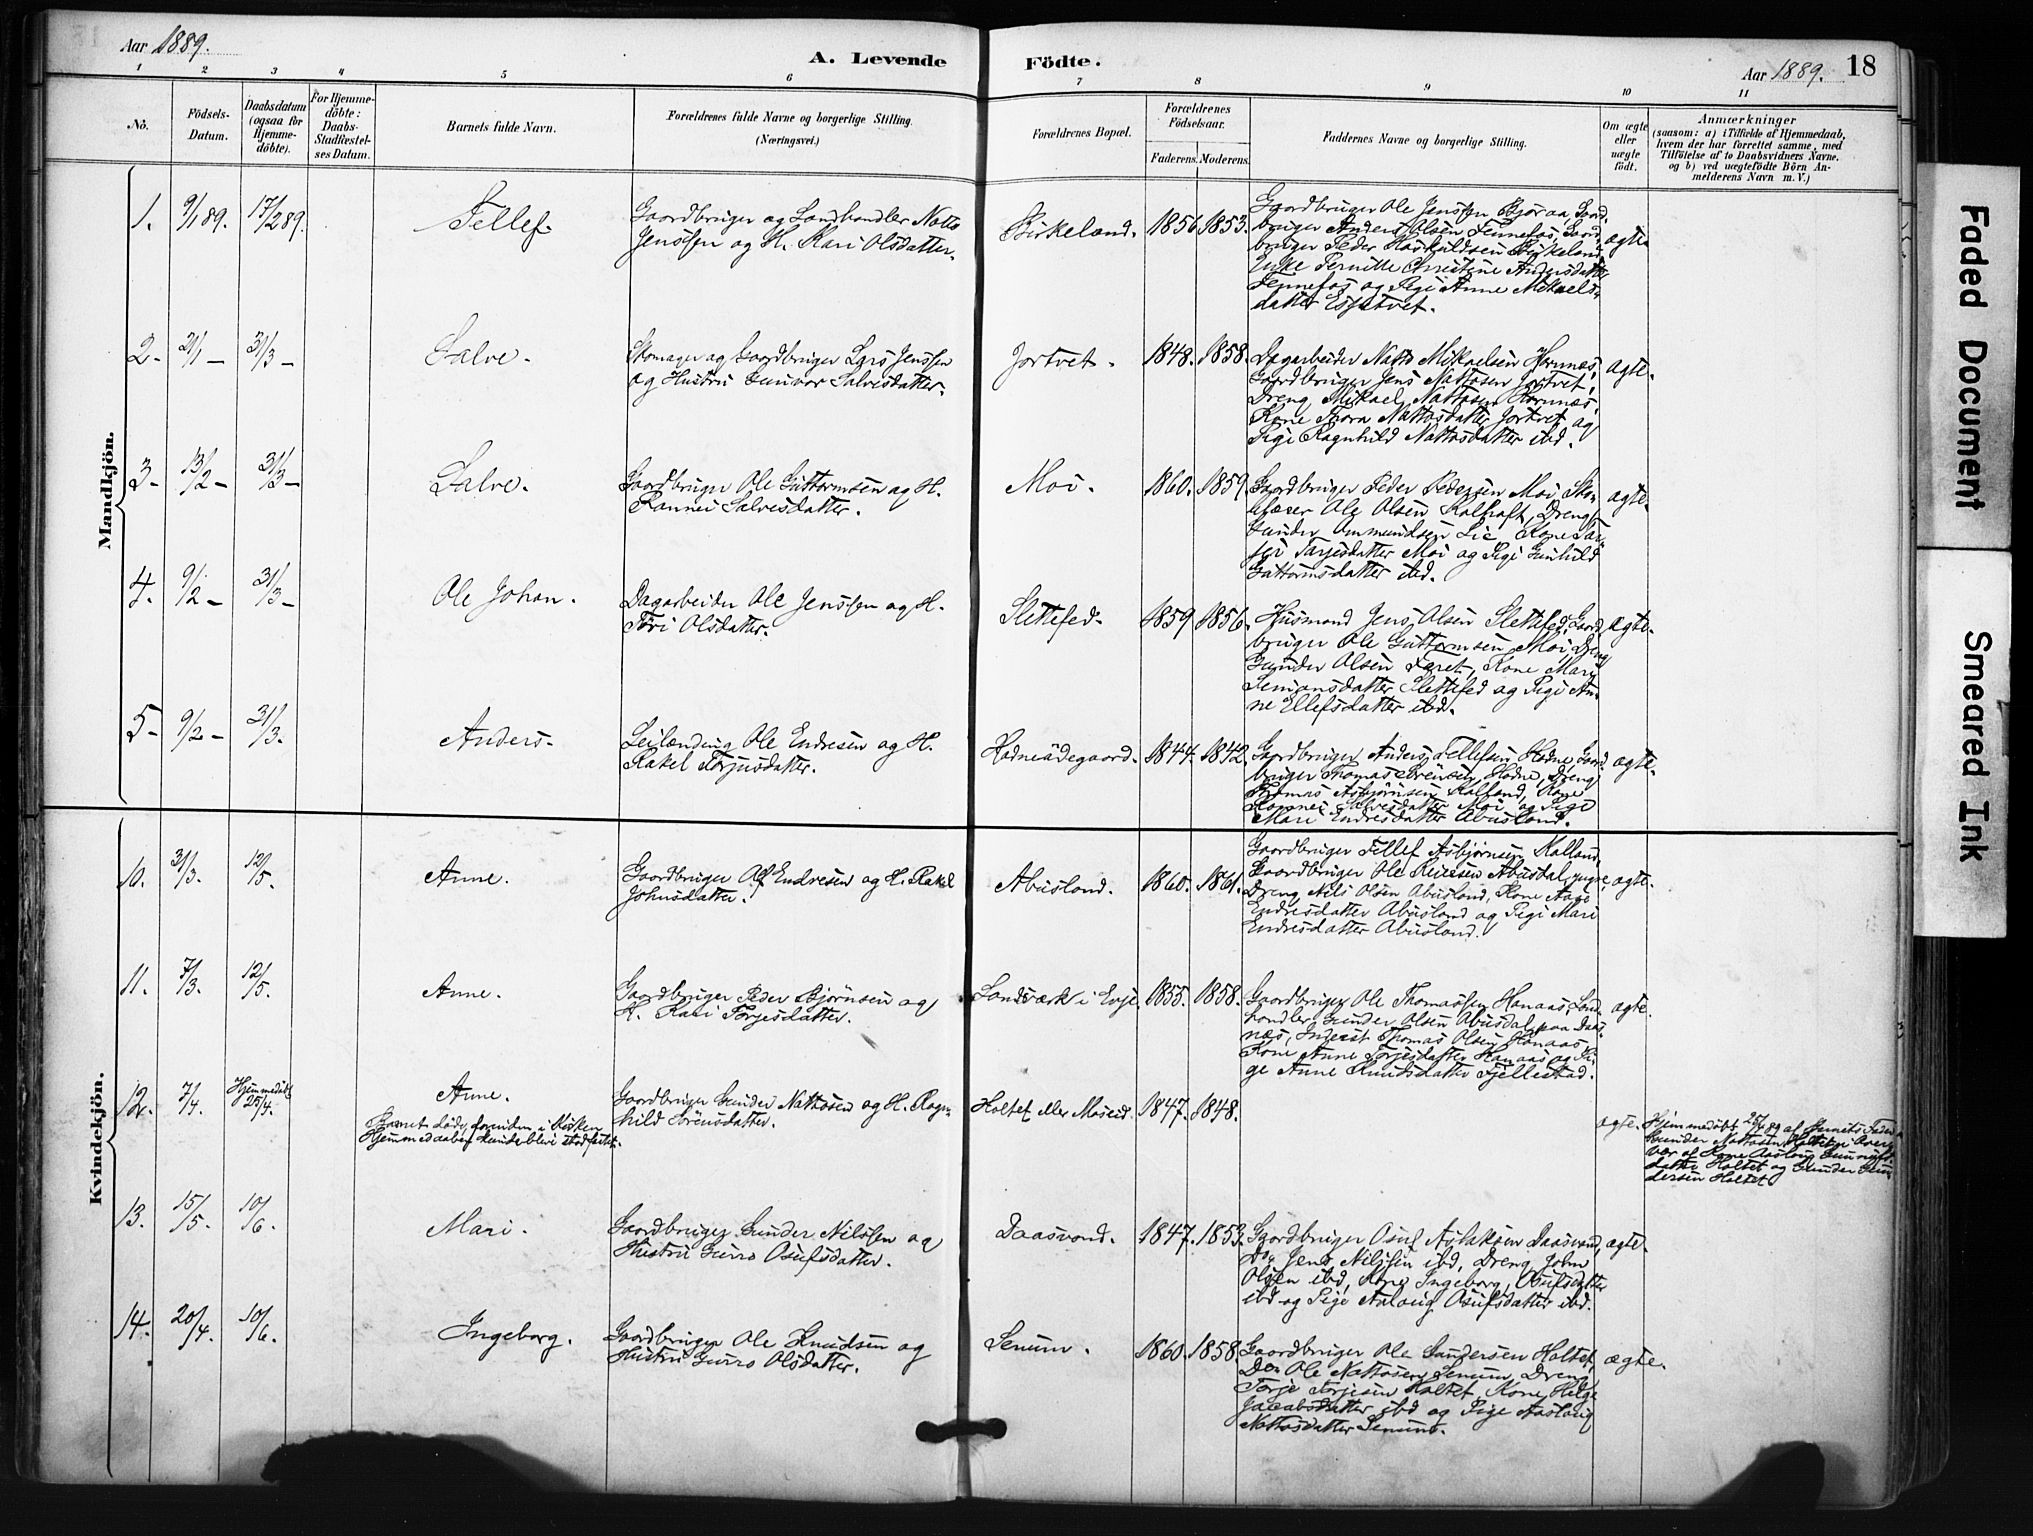 Aar 1889.
A. Levende Födte.
Aar 1889. 18
1 2 3 4 5 6 7 8 9 10 11
No.
Födsels-
Datum.
Daabsdatum
(ogsaa for
Hjemme-
döbte).
For Hjemme-
döbte:
Daabs-
Stadfæstel-
ses Datum.
Barnets fulde Navn.
Forældrenes fulde Navne og borgerlige Stilling.
(Næringsvei.)
Forældrenes Bopæl.
Forældrenes
Födselsaar.
Faderens. Moderens.
Faddernes Navne og borgerlige Stilling.
Om ægte
eller
uægte
födt.
Anmærkninger
(saasom: a) i Tilfælde af Hjemmedaab,
hvem der har forrettet samme, med
Tilföielse af to Daabsvidners Navne.
og b) ved uægtefödte Börn An-
melderens Navn m. V.)
Mandkjön.
1. 9/1 89. 17/2 89. Tellef.
Gaardbruger og Landhandler Natto
Jenssen og H. Kari Olsdatter.
Birkeland. 1856 1853.
Gaardbruger Ole Jenssen Bjoraa, Gaard-
bruger Anders Olsen Fennefos, Gaard-
bruger Peder Birkeland,
Enke Pernille Christine Andersdatter
Fennefos og Pige Anne Mikaels-
datter Espetvet.
ægte
2. 21/1 — 31/3 — Salve.
Skomager og Gaardbruger Lars Jenssen
og Hustru Gunvor Salvesdatter.
Jortvet. 1848. 1858.
Dagarbeider Natto Mikaelsen Hornnes,
Gaardbruger Jens Nattosen Jortvet,
Dreng Mikael Nattosen Hornnæs,
Kone Thora Nattosdatter Jortvet og
Pige Ragnhild Nattosdatter ibd.
ægte.
3. 13/2 — 31/3 — Salve.
Gaardbruger Ole Guttormsen og H.
Rannei Salvesdatter.
Moi. 1860. 1859.
Gaardbruger Peder Pedersen Moi, Sko-
Ole Olsen Dreng
Gunder Ommundsen Lie, Kone Tar-
jei Tarjesdatter Moi og Pige Gunhild
Guttormsdatter ibd.
ægte.
4. 9/2 — 31/3 — Ole Johan.
Dagarbeider Ole Jenssen og H.
Töri Olsdatter.
Slettefed. 1859 1856.
Husmand Jens Olsen Slettefed, Gaard-
bruger Ole Guttormsen Moi, Dreng
Gunder Olsen Kone Mari
Simonsdatter Slettefed og Pige An-
ne Ellefsdatter ibd.
ægte.
5. 9/2 — 31/3. Anders.
Leilænding Ole Endresen og H.
Rakel Torjusdatter.
Hodneödegaard. 1844. 1842.
Gaardbruger Anders Tellefsen Hodne, Gaard-
bruger Thomas Sörensen Hodne, Dreng
Thomas Asbjörnsen Kalland, Kone
Rannei Salvesdatter Moi og Pige
Mari Endresdatter Abusland.
ægte.
Kvindekjön.
10. 31/3. 12/5. Anne.
Gaardbruger Alf Endresen og H. Rakel
Johnsdatter.
Abusland. 1860. 1861.
Gaardbruger Tellef Asbjörnsen Kalland,
Gaardbruger Ole Abusdal,
Dreng Nils Olsen Abusland, Kone Aase
Endresdatter Abusland og Pige Mari
Endresdatter Abusland.
ægte.
11. 7/3. 12/5. Anne.
Gaardbruger Peder Bjørnsen og
H. Kari Torjesdatter.
Landsværk i Evje. 1855. 1858.
Gaardbruger Ole Thomassen Hanaas, Land-
handler Gunder Olsen Abusdal paa Daas-
næs, Thomas Olsen Hanaas,
Kone Anne Torjesdatter Hanaas og Pi-
ge Anne Knudsdatter Fjellestad.
ægte.
12. 7/4. Hjemmedöbt 25/4. Anne.
Barnet döde, forinden i Kirken
Hjemmedaaben kunde blive stadfæstet.
Gaardbruger Gunder Nattosen og H. Ragn-
hild Sörensdatter.
Holtet eller Moseid. 1847. 1848.
ægte.
Hjemmedöbt 25/4 89 af Barnets Fader
Gunder Nattosen Holtet i Overv-
vær af Kone Aaslaug
datter Holtet og Gunder Gun-
dersen Holtet.
13. 15/5. 10/6. Mari.
Gaardbruger Gunder Nilssen og
Hustru Gurro Osufsdatter.
Daasvand. 1847. 1853.
Gaardbruger Osuf Aslaksen Daasvand,
Do Jens Nilssen ibd, Dreng John
Olsen ibd, Kone Ingeborg Osufsdatter
ibd og Pige Aslaug Osufsdatter ibd.
ægte.
14. 20/4. 10/6. Ingeborg.
Gaardbruger Ole Knudsen og
Hustru Gurro Olsdatter.
Senum. 1860. 1858.
Gaardbruger Ole Gundersen Holtet,
Do Ole Nattosen Senum, Dreng
Torje Torjesen Holtet, Kone Helge
Jacobsdatter ibd og Pige Aaslaug
Nattosdatter Senum.
ægte.
Faded Document
Smeared Ink